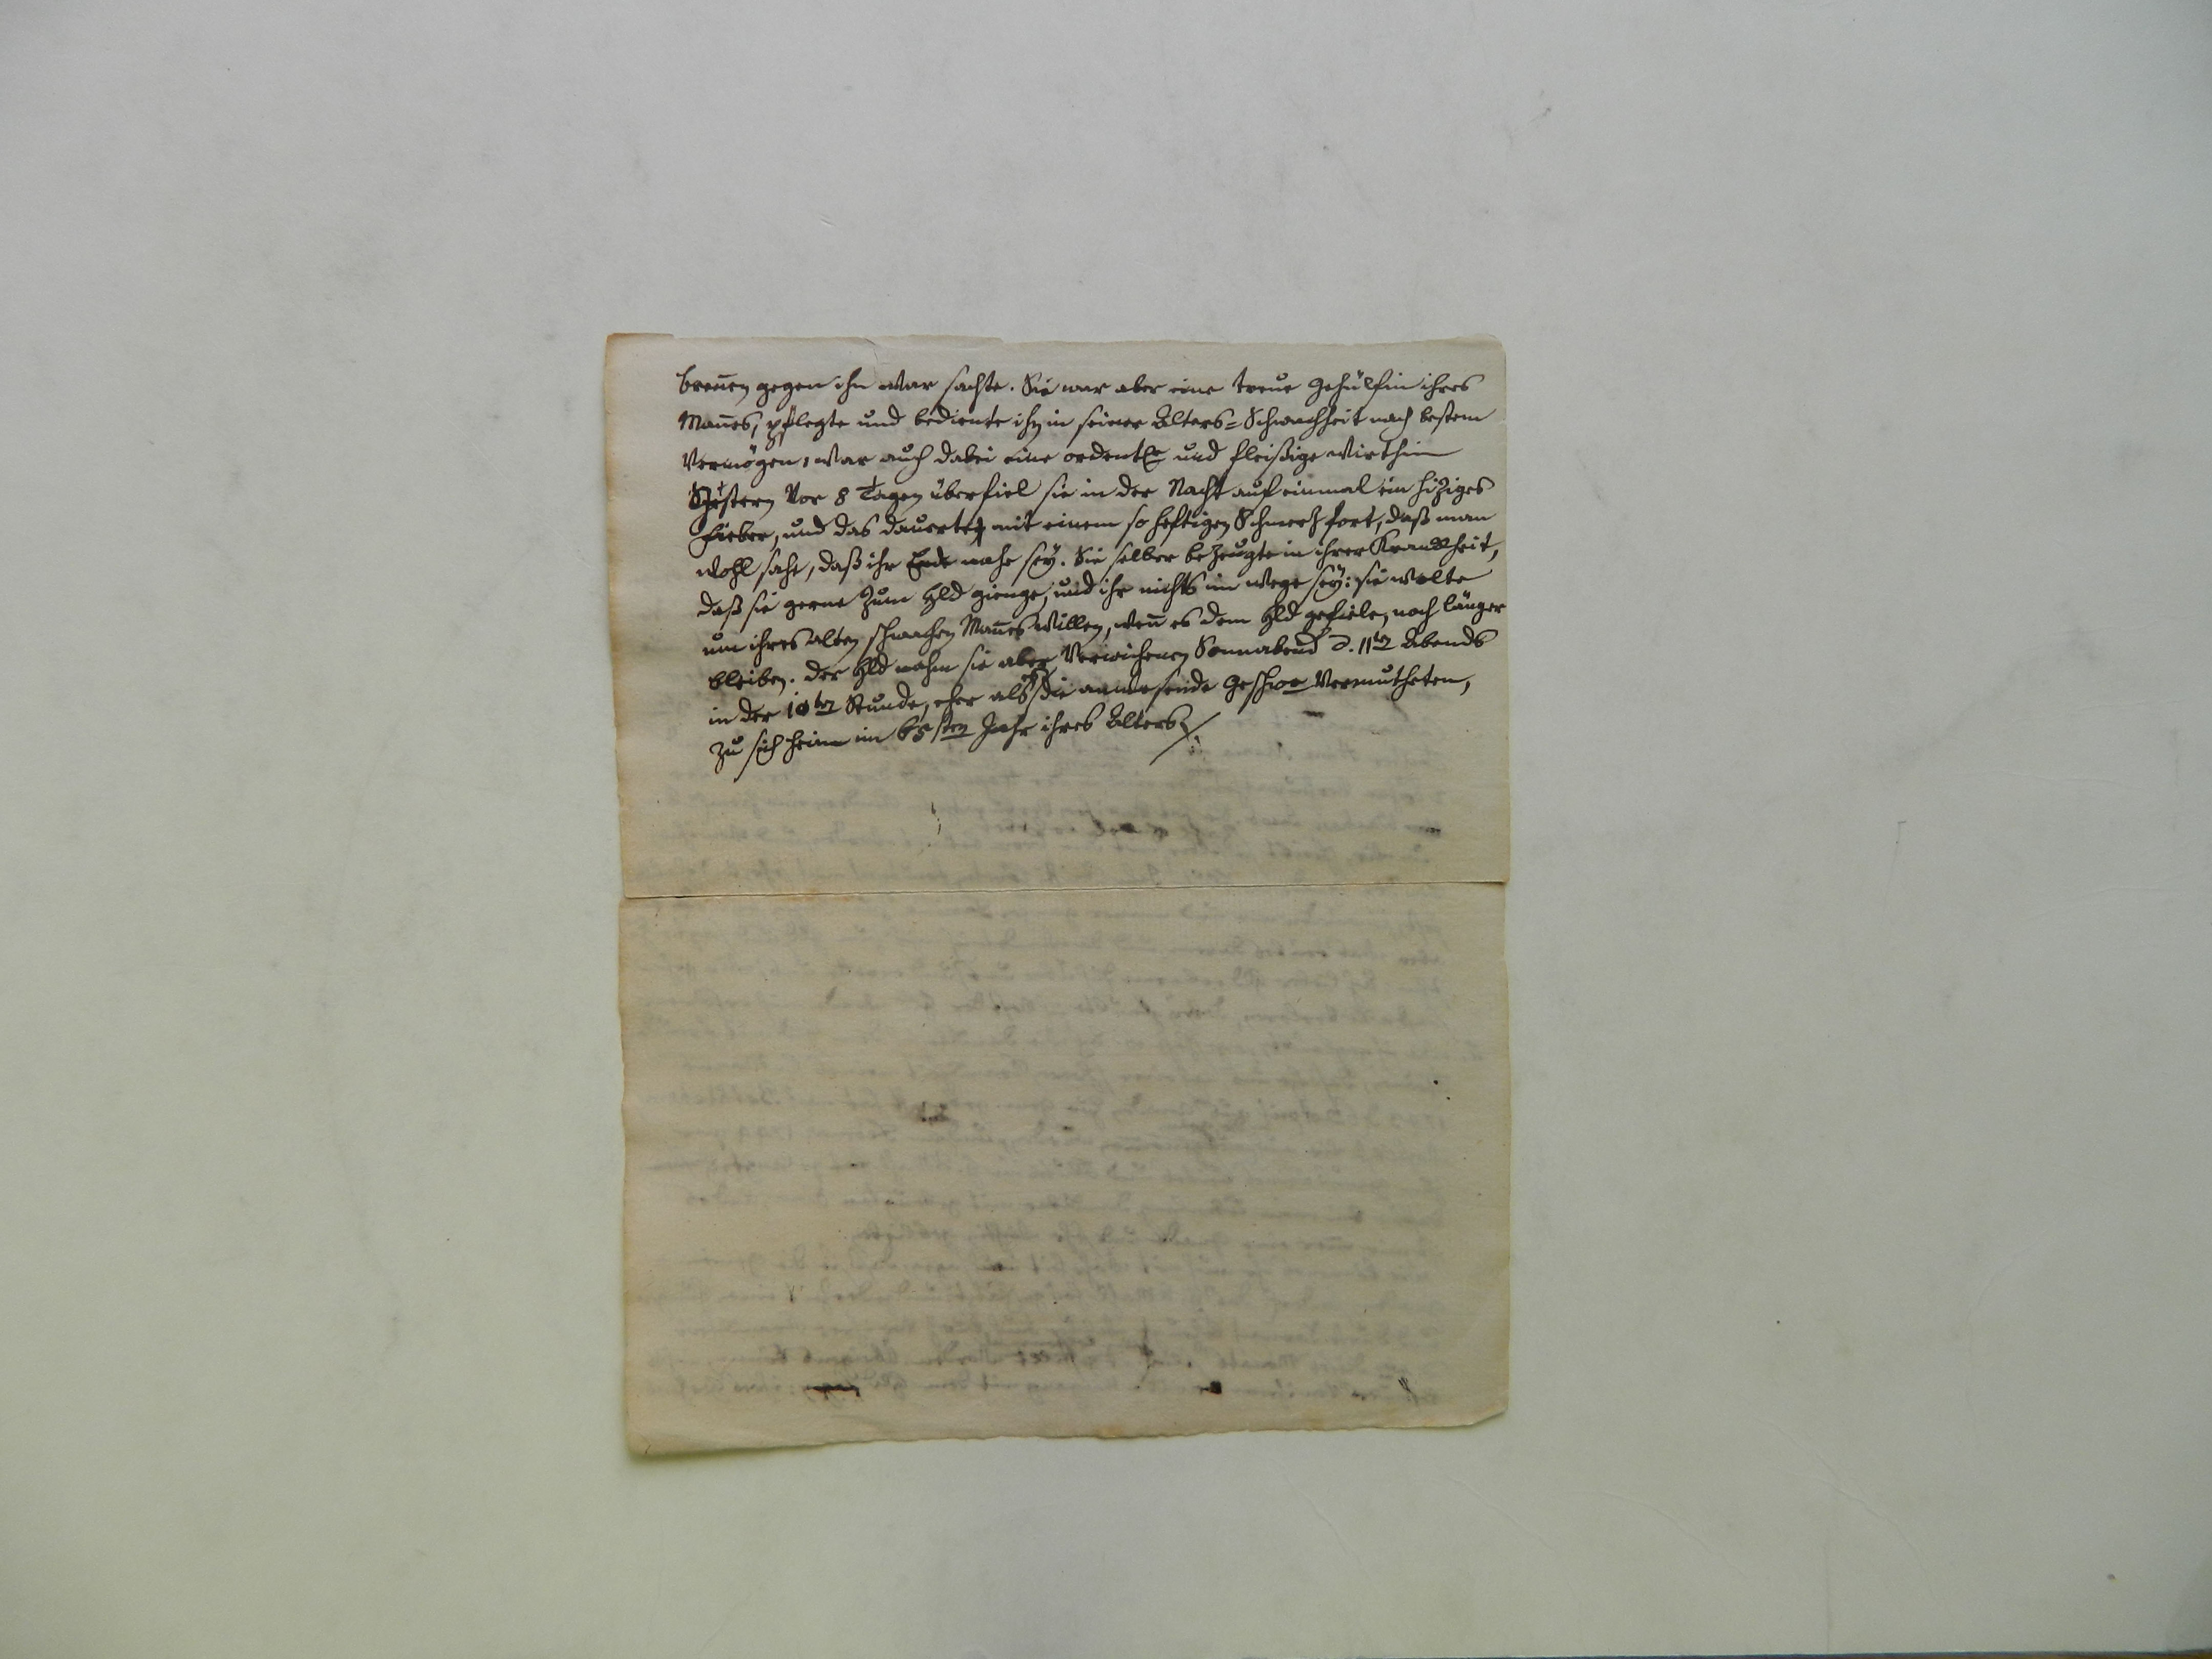 brennen gegen ihn war sachte. Sie war aber eine treue Gehülfin ihres
Mañes, pflegte und bediente ihn in seiner Alters=Schwachheit nach bestem
Vermögen, war auch dabei eine ordentle und fleißige Wirthin
Gestern vor 8 Tagen überfiel sie in der Nacht auf einmal ein hiziges
Fieber, und das dauerte mit einem so heftigen Schmerz fort, daß man
wohl sahe, daß ihr Ende nahe sey. Sie selber bezeugte in ihrer Krankheit,
daß sie gerne zum Hld gienge, und ihr nichts im Wege sey: sie wolte
um ihres alten schwachen Mañes willen, weñ es dem Hld gefiele, noch länger
bleiben. Der Hld nahm sie aber verwichenen Sonnabend d. 11ten Abends
in der 10ten Stunde, eher als es die anwesende Geschwr vermutheten,
zu sich heim im 65sten Jahr ihres Alters